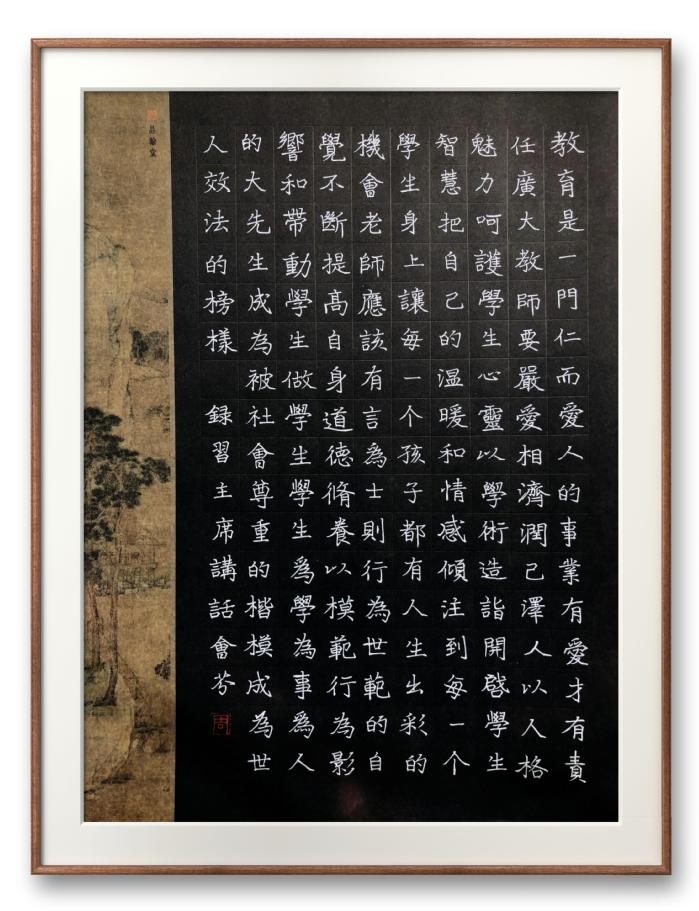 教育是一門仁而愛人的事業有愛才有責
任廣大教師要嚴愛相濟潤己澤人以人格
魅力呵護學生心靈以學術造詣開啓學生
智慧把自己的温暖和情感傾注到每一个
學生身上讓每一个孩子都有人生出彩的
機會老師應該有言爲士則行為世範的自
覺不斷提髙自身道德脩養以模範行為影
響和帶動學生做學生學生爲學為事爲人
的大先生成為被社會尊重的楷模成為世
人效法的榜樣 録習主席講話會芬
周